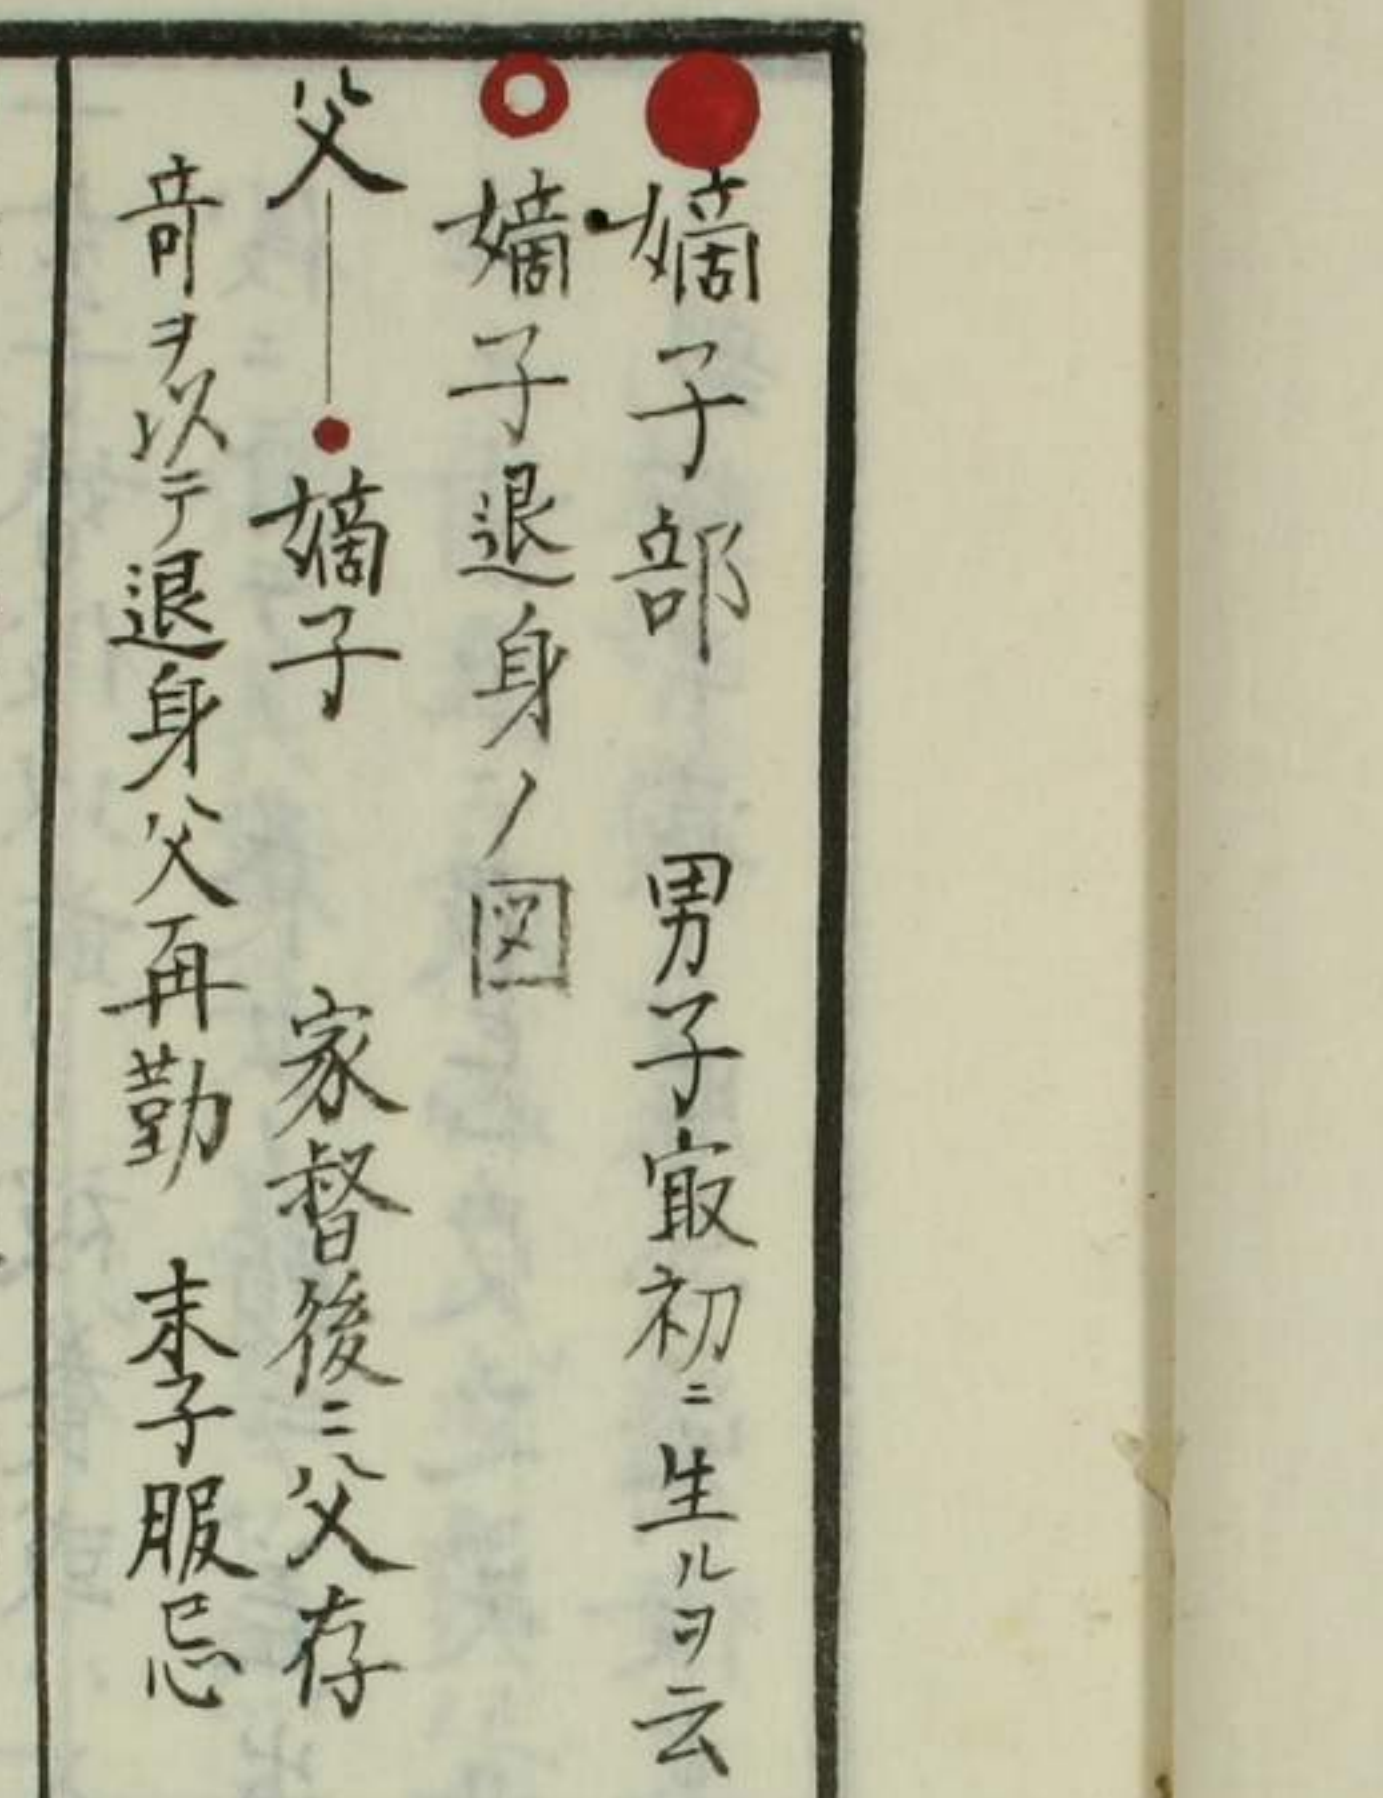 嫡子部 男子寂初ニ生ルヲ云
嫡子退身ノ図
父 嫡子 家督後ニ父存
奇ヲ以テ退身父再勤 末子服忌